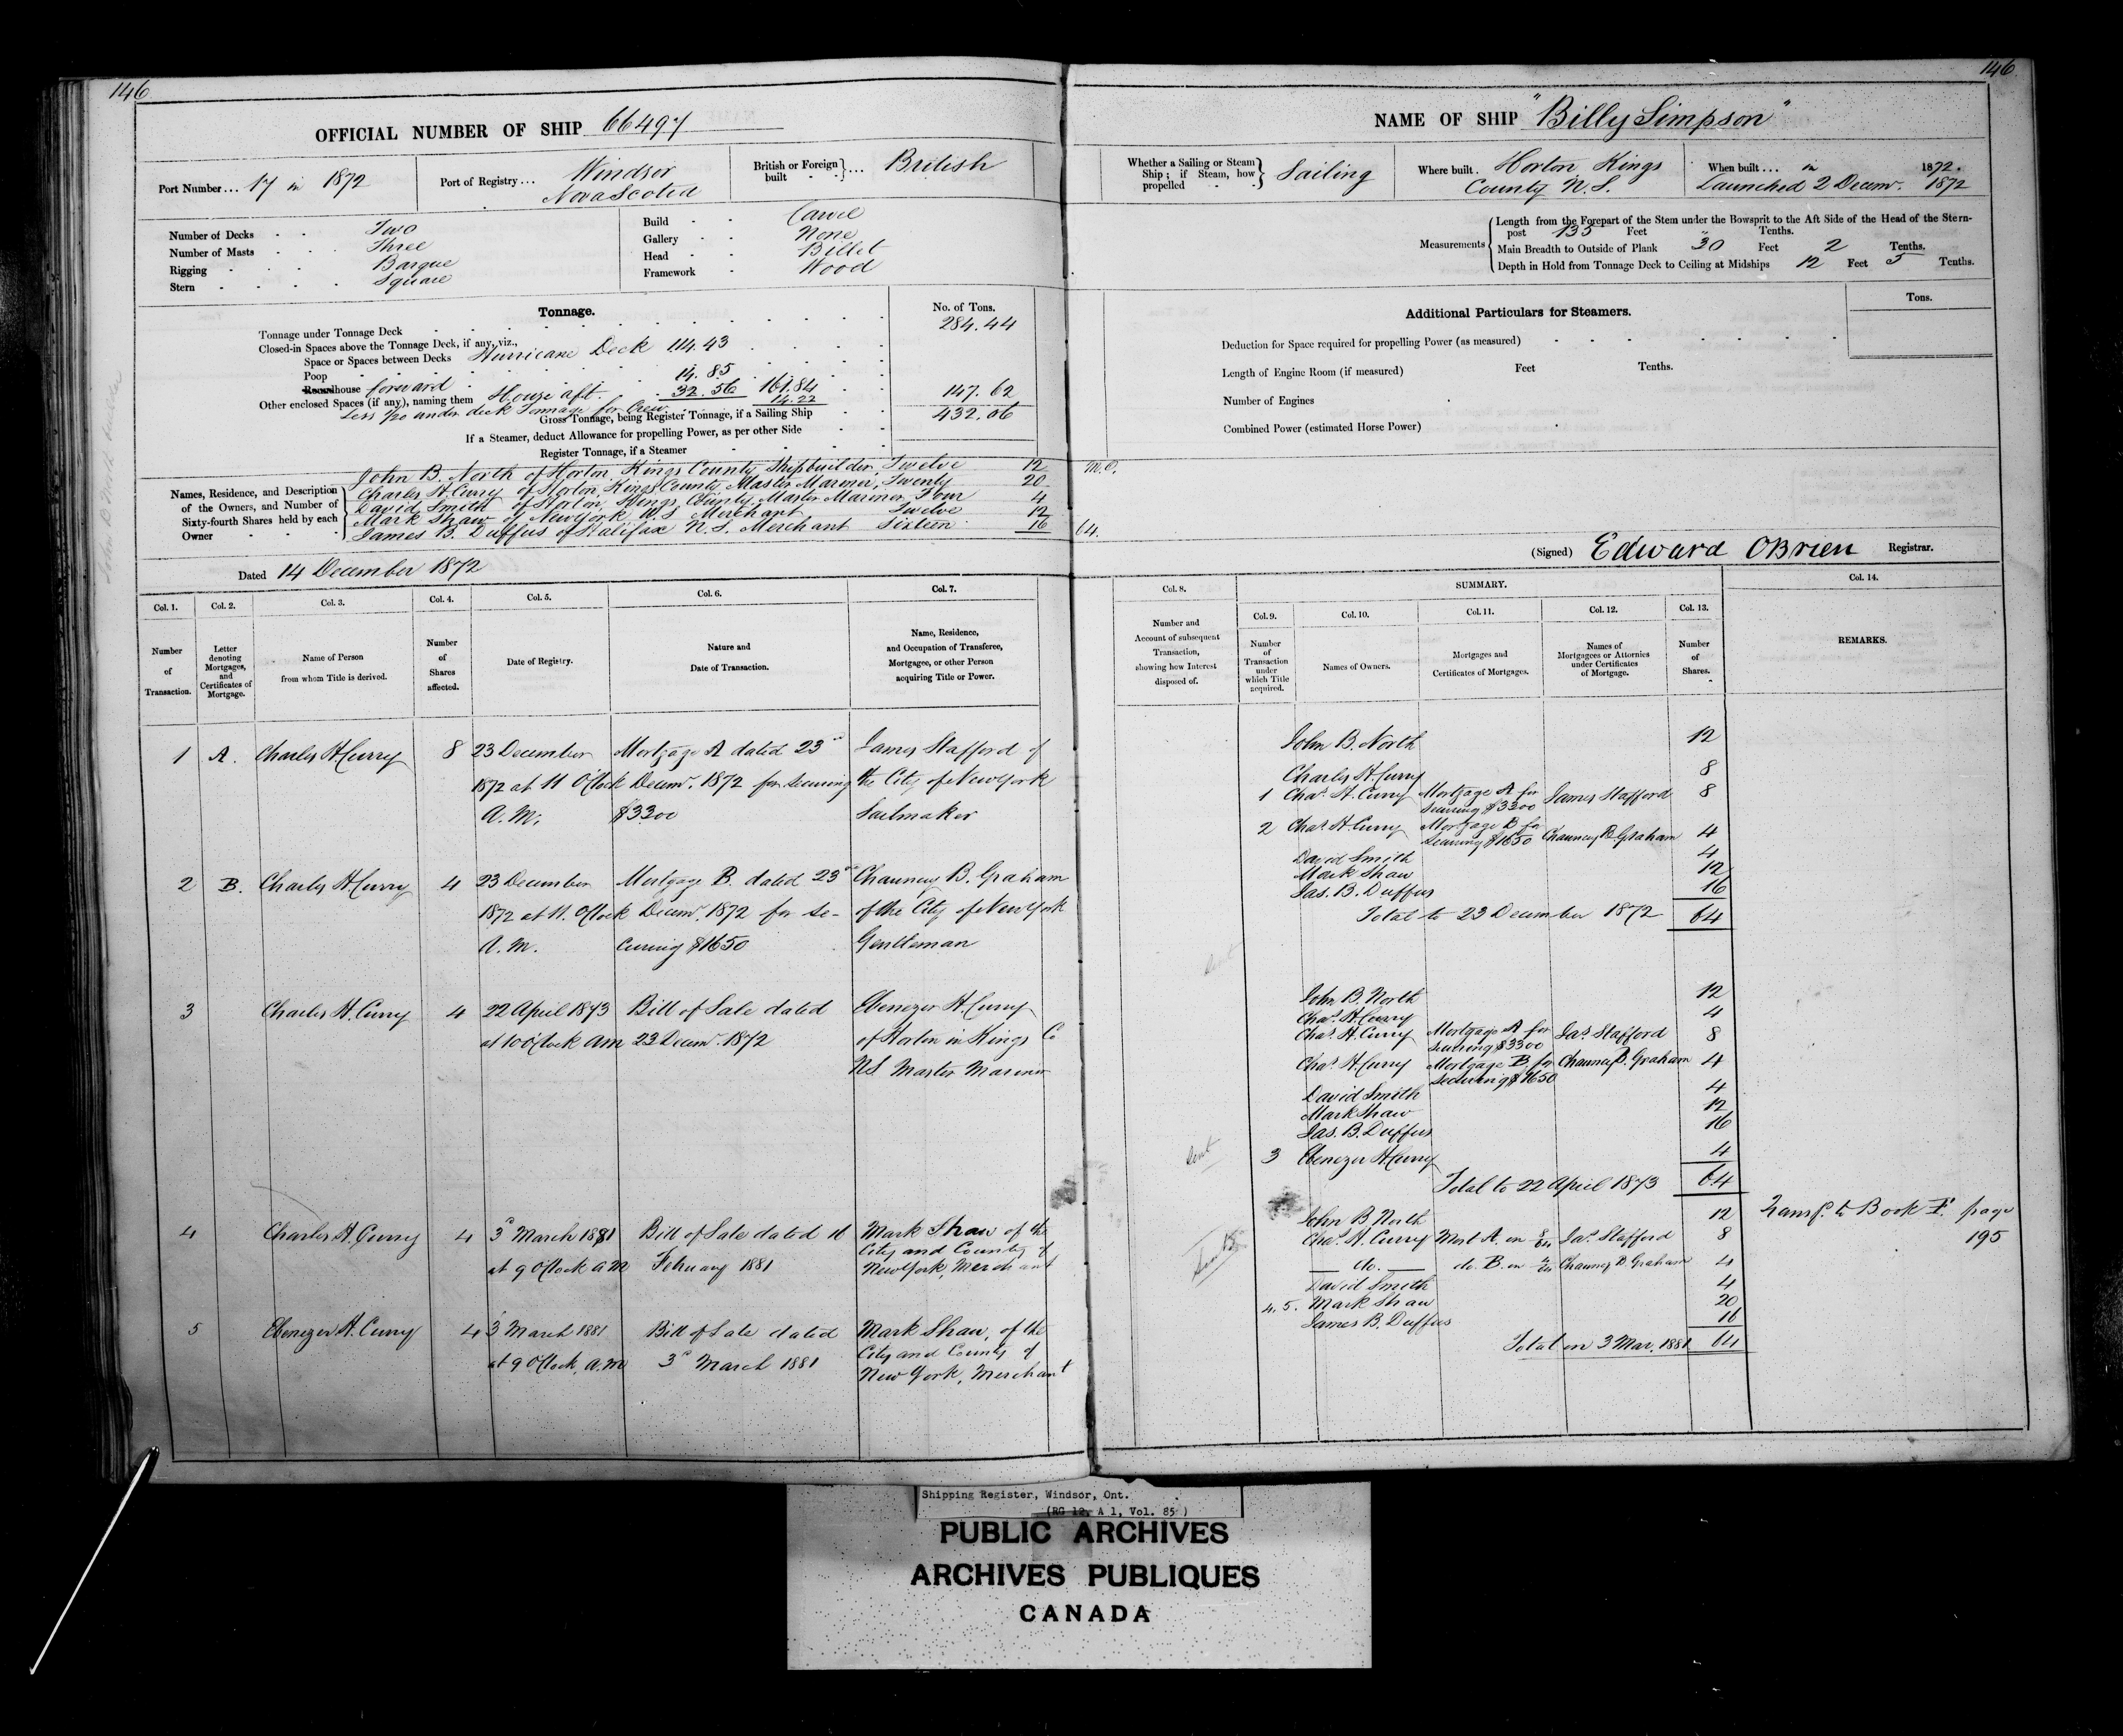 146
OFFICIAL NUMBER OF SHIP 66497
Port Number... 17 in 1872
Port of Registry... Windsor
Nova Scotia
British or Foreign built ... British
Number of Decks Two
Number of Masts Three
Rigging Barque
Stern Square
Build Carvel
Gallery None
Head Billet
Framework Wood
Tonnage.
No. of Tons.
Tonnage under Tonnage Deck 284.44
Closed-in Spaces above the Tonnage Deck, if any, viz.,
Space or Spaces between Decks Hurricane Deck 114.43
Poop
Roundhouse forward 14.85
Other enclosed Spaces (if any), naming them House aft. 32.56 161.84
Less 1/20 under deck Tonnage for Crew 14.22 147.62
Gross Tonnage, being Register Tonnage, if a Sailing Ship 432.06
If a Steamer, deduct Allowance for propelling Power, as per other Side
Register Tonnage, if a Steamer
Names, Residence, and Description of the Owners, and Number of Sixty-fourth Shares held by each Owner
John B. North of Horton, Kings County, Shipbuilder, Twelve 12
Charles H. Curry of Horton, Kings County Master Mariner, Twenty 20
David Smith of Horton, Kings County Master Mariner, Four 4
Mark Shaw of New York U.S Merchant Twelve 12
James B. Duffus of Halifax N.S. Merchant Sixteen 16
Dated 14 December 1872
Col. 1.
Number of Transaction.
Col. 2.
Letter denoting Mortgages, and Certificates of Mortgage.
Col. 3.
Name of Person from whom Title is derived.
Col. 4.
Number of Shares affected.
Col. 5.
Date of Registry.
Col. 6.
Nature and Date of Transaction.
Col. 7.
Name, Residence, and Occupation of Transferee, Mortgagee, or other Person acquiring Title or Power.
1 A. Charles H. Curry 8 23 December Mortgage A dated 23d James Stafford of
1872 at 11 O'Clock Decemr. 1872 for securing the City of New York
A.M. $3300 Sailmaker
2 B. Charles H Curry 4 23 December Mortgage B. dated 23d Chauncey B. Graham
1872 at 11. O'Clock Decemr. 1872 for se- of the City of New York
A.M. curing $1650 Gentleman
3 Charles H. Curry 4 22 April 1873 Bill of Sale dated Ebenezer H. Curry
at 10 O'Clock am 23 Decemr. 1872 of Horton in Kings Co
NS Master Mariner
4 Charles H. Curry 4 3d March 1881 Bill of Sale dated Mark Shaw of the
City and County of
at 9 O'Clock AM February 1881 New York, Merchant
5 Ebenezer H. Curry 4 3 March 1881 Bill of Sale dated Mark Shaw, of the
at 9 O'Clock, A.M 3d March 1881 City and County of
New York, Merchant
146
NAME OF SHIP "Billy Simpson"
Whether a Sailing or Steam Ship; if Steam, how propelled Sailing
Where built. Horton Kings
County N.S.
When built... in 1872.
Launched 2 Decemr. 1872
Measurements
Length from the Forepart of the Stem under the Bowsprit to the Aft Side of the Head of the Stern-
post 135 Feet " Tenths.
Main Breadth to Outside of Plank 30 Feet 2 Tenths.
Depth in Hold from Tonnage Deck to Ceiling at Midships 12 Feet 5 Tenths.
Additional Particulars for Steamers.
Tons.
Deduction for Space required for propelling Power (as measured)
Length of Engine Room (if measured) Feet Tenths.
Number of Engines
Combined Power (estimated Horse Power)
M.O.
64.
(Signed) Edward OBrien Registrar.
Col. 8.
Number and Account of subsequent Transaction, showing how Interest disposed of.
SUMMARY.
Col. 9.
Number of Transaction under which Title acquired.
Col. 10.
Names of Owners.
Col. 11.
Mortgages and Certificates of Mortgages.
Col. 12.
Names of Mortgagees or Attornies under Certificates of Mortgage.
Col. 13.
Number of Shares.
Col. 14.
REMARKS.
John B. North 12
Charles H. Curry 8
1 Chas. H. Curry Mortgage A for securing $3300 James Stafford 8
2 Chas. H Curry Mortgage B for securing $1650 Chauncey B Graham 4
David Smith 4
Mark Shaw 12
Jas. B. Duffus 16
Total to 23 December 1872 64
John B. North 12
Chas. H. Curry 4
Chas. H. Curry Mortgage A for securing $3300 Jas. Stafford 8
Chas. H. Curry Mortgage B. for securing $1650 Chauncey B. Graham 4
David Smith 4
Mark Shaw 12
Jas. B. Duffus 16
Sent
3 Ebenezer H Curry 4
Total to 22 April 1873 64
John B North 12 Transf. to Book F. page
Chas. H. Curry Mort A. on 8/64 Jas. Stafford 8 195
do. do. B. on 4/64 Chauncey B. Graham 4
David Smith 4
4. 5. Mark Shaw 20
James B. Duffus 16
Total on 3 Mar. 1881 64
Shipping Register, Windsor, Ont.
(RG 12, A 1, Vol. 85)
PUBLIC ARCHIVES
ARCHIVES PUBLIQUES
CANADA